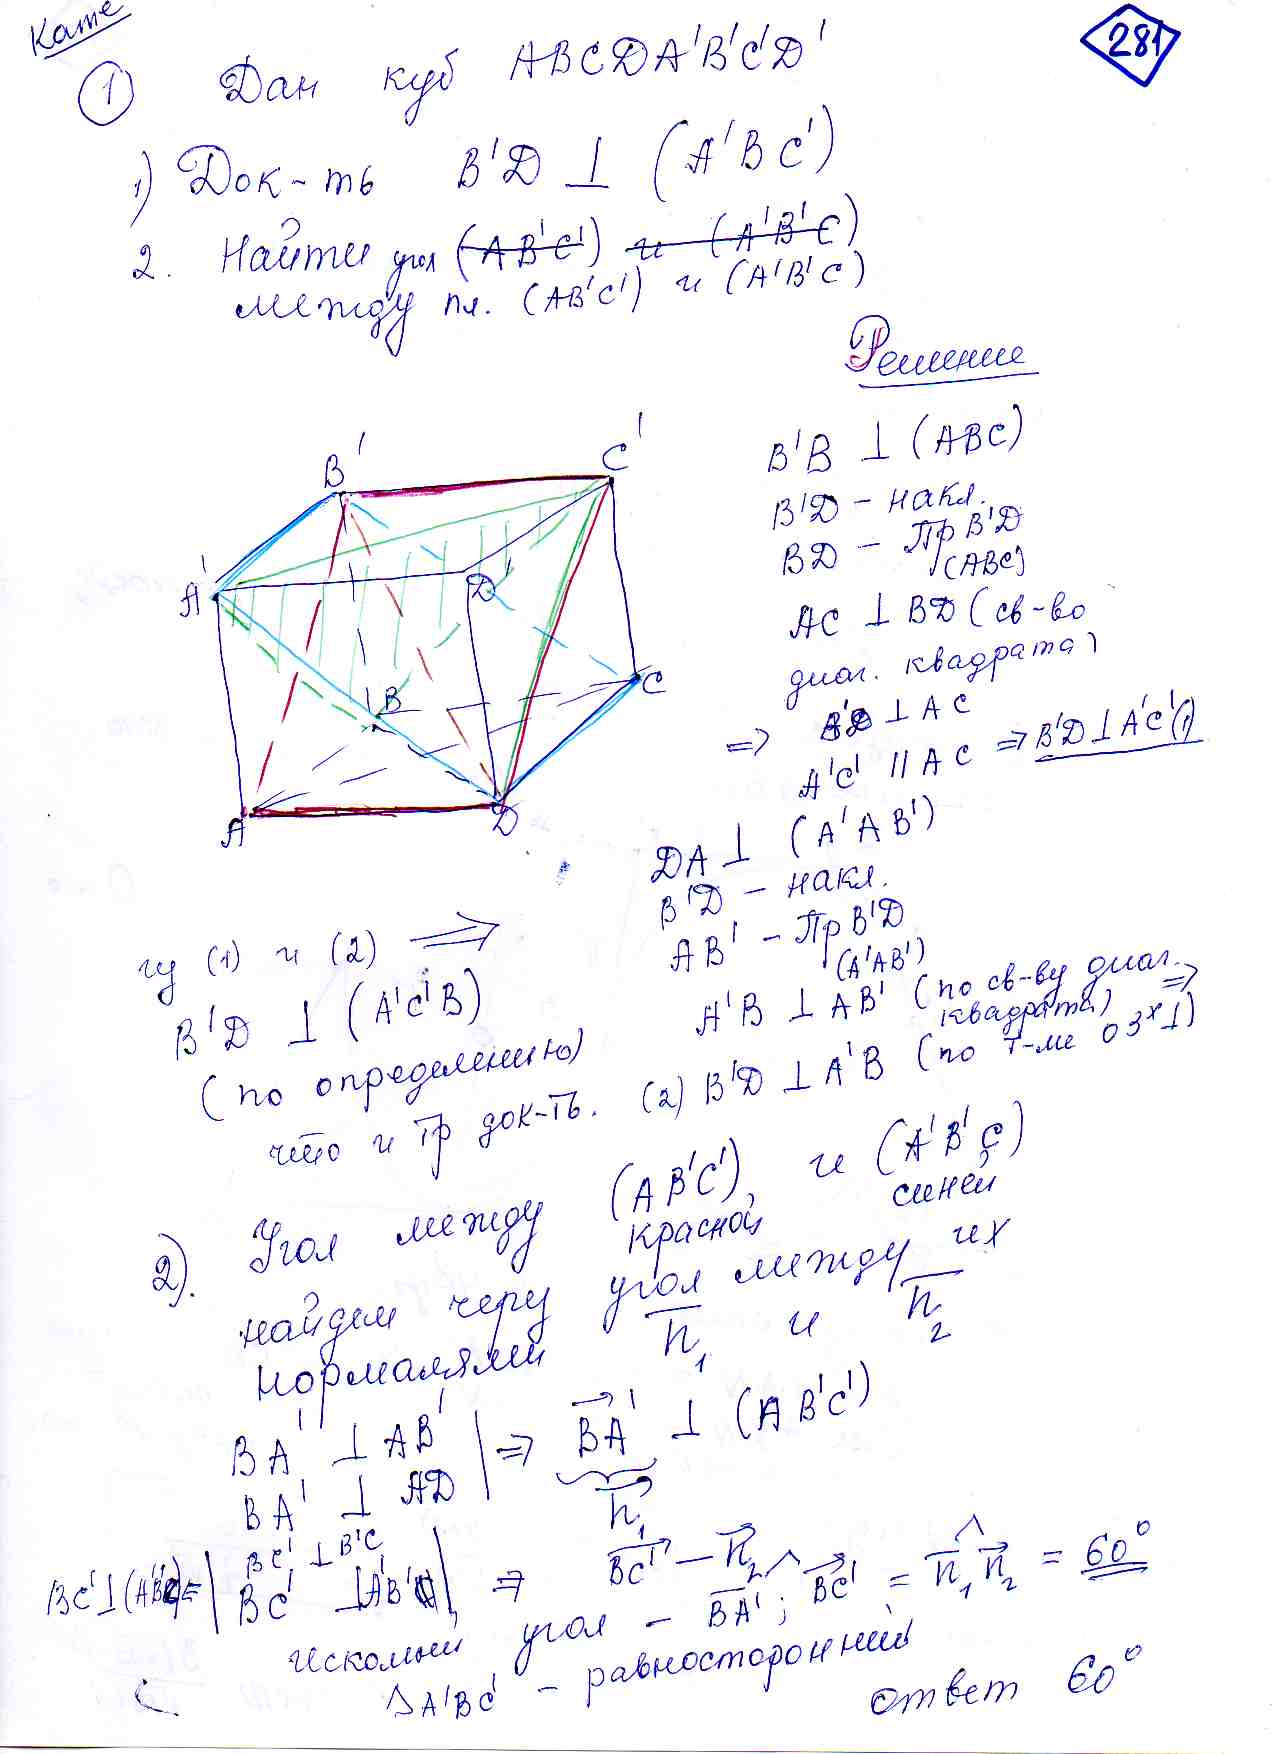 Кате
281
① Дан куб ABCDA'B'C'D'
1) Док-ть B'D ⊥ (A'BC')
2. Найти угол (AB'C') и (A'B'C)
между пл. (AB'C') и (A'B'C)
Решение
B'B ⊥ (ABC)
B'D - накл.
BD - Пр B'D
(ABC)
AC ⊥ BD (св-во
диаг. квадрата)
=> B'D ⊥ AC
A'C' || AC => B'D ⊥ A'C' (1)
B'
C'
A'
D'
B
C
A
D
DA ⊥ (A'AB')
B'D - накл.
AB' - Пр B'D
(A'AB')
A'B ⊥ AB' (по св-ву диаг. =>
квадрата)
(2) B'D ⊥ A'B (по т-ме о 3х ⊥)
из (1) и (2) =>
B'D ⊥ (A'C'B)
(по определению)
что и тр док-ть.
2). Угол между (AB'C'), и (A'B'C)
красной синей
найдем через угол между их
нормалями n₁ и n₂
BA' ⊥ AB' | => BA' ⊥ (AB'C')
BA' ⊥ AD
n₁
BC' ⊥ B'C
BC' ⊥ A'B' => BC' - n₂
искомый угол - BA'; BC' = n₁ n₂ = 60°
△A'BC' - равносторонний
ответ 60°